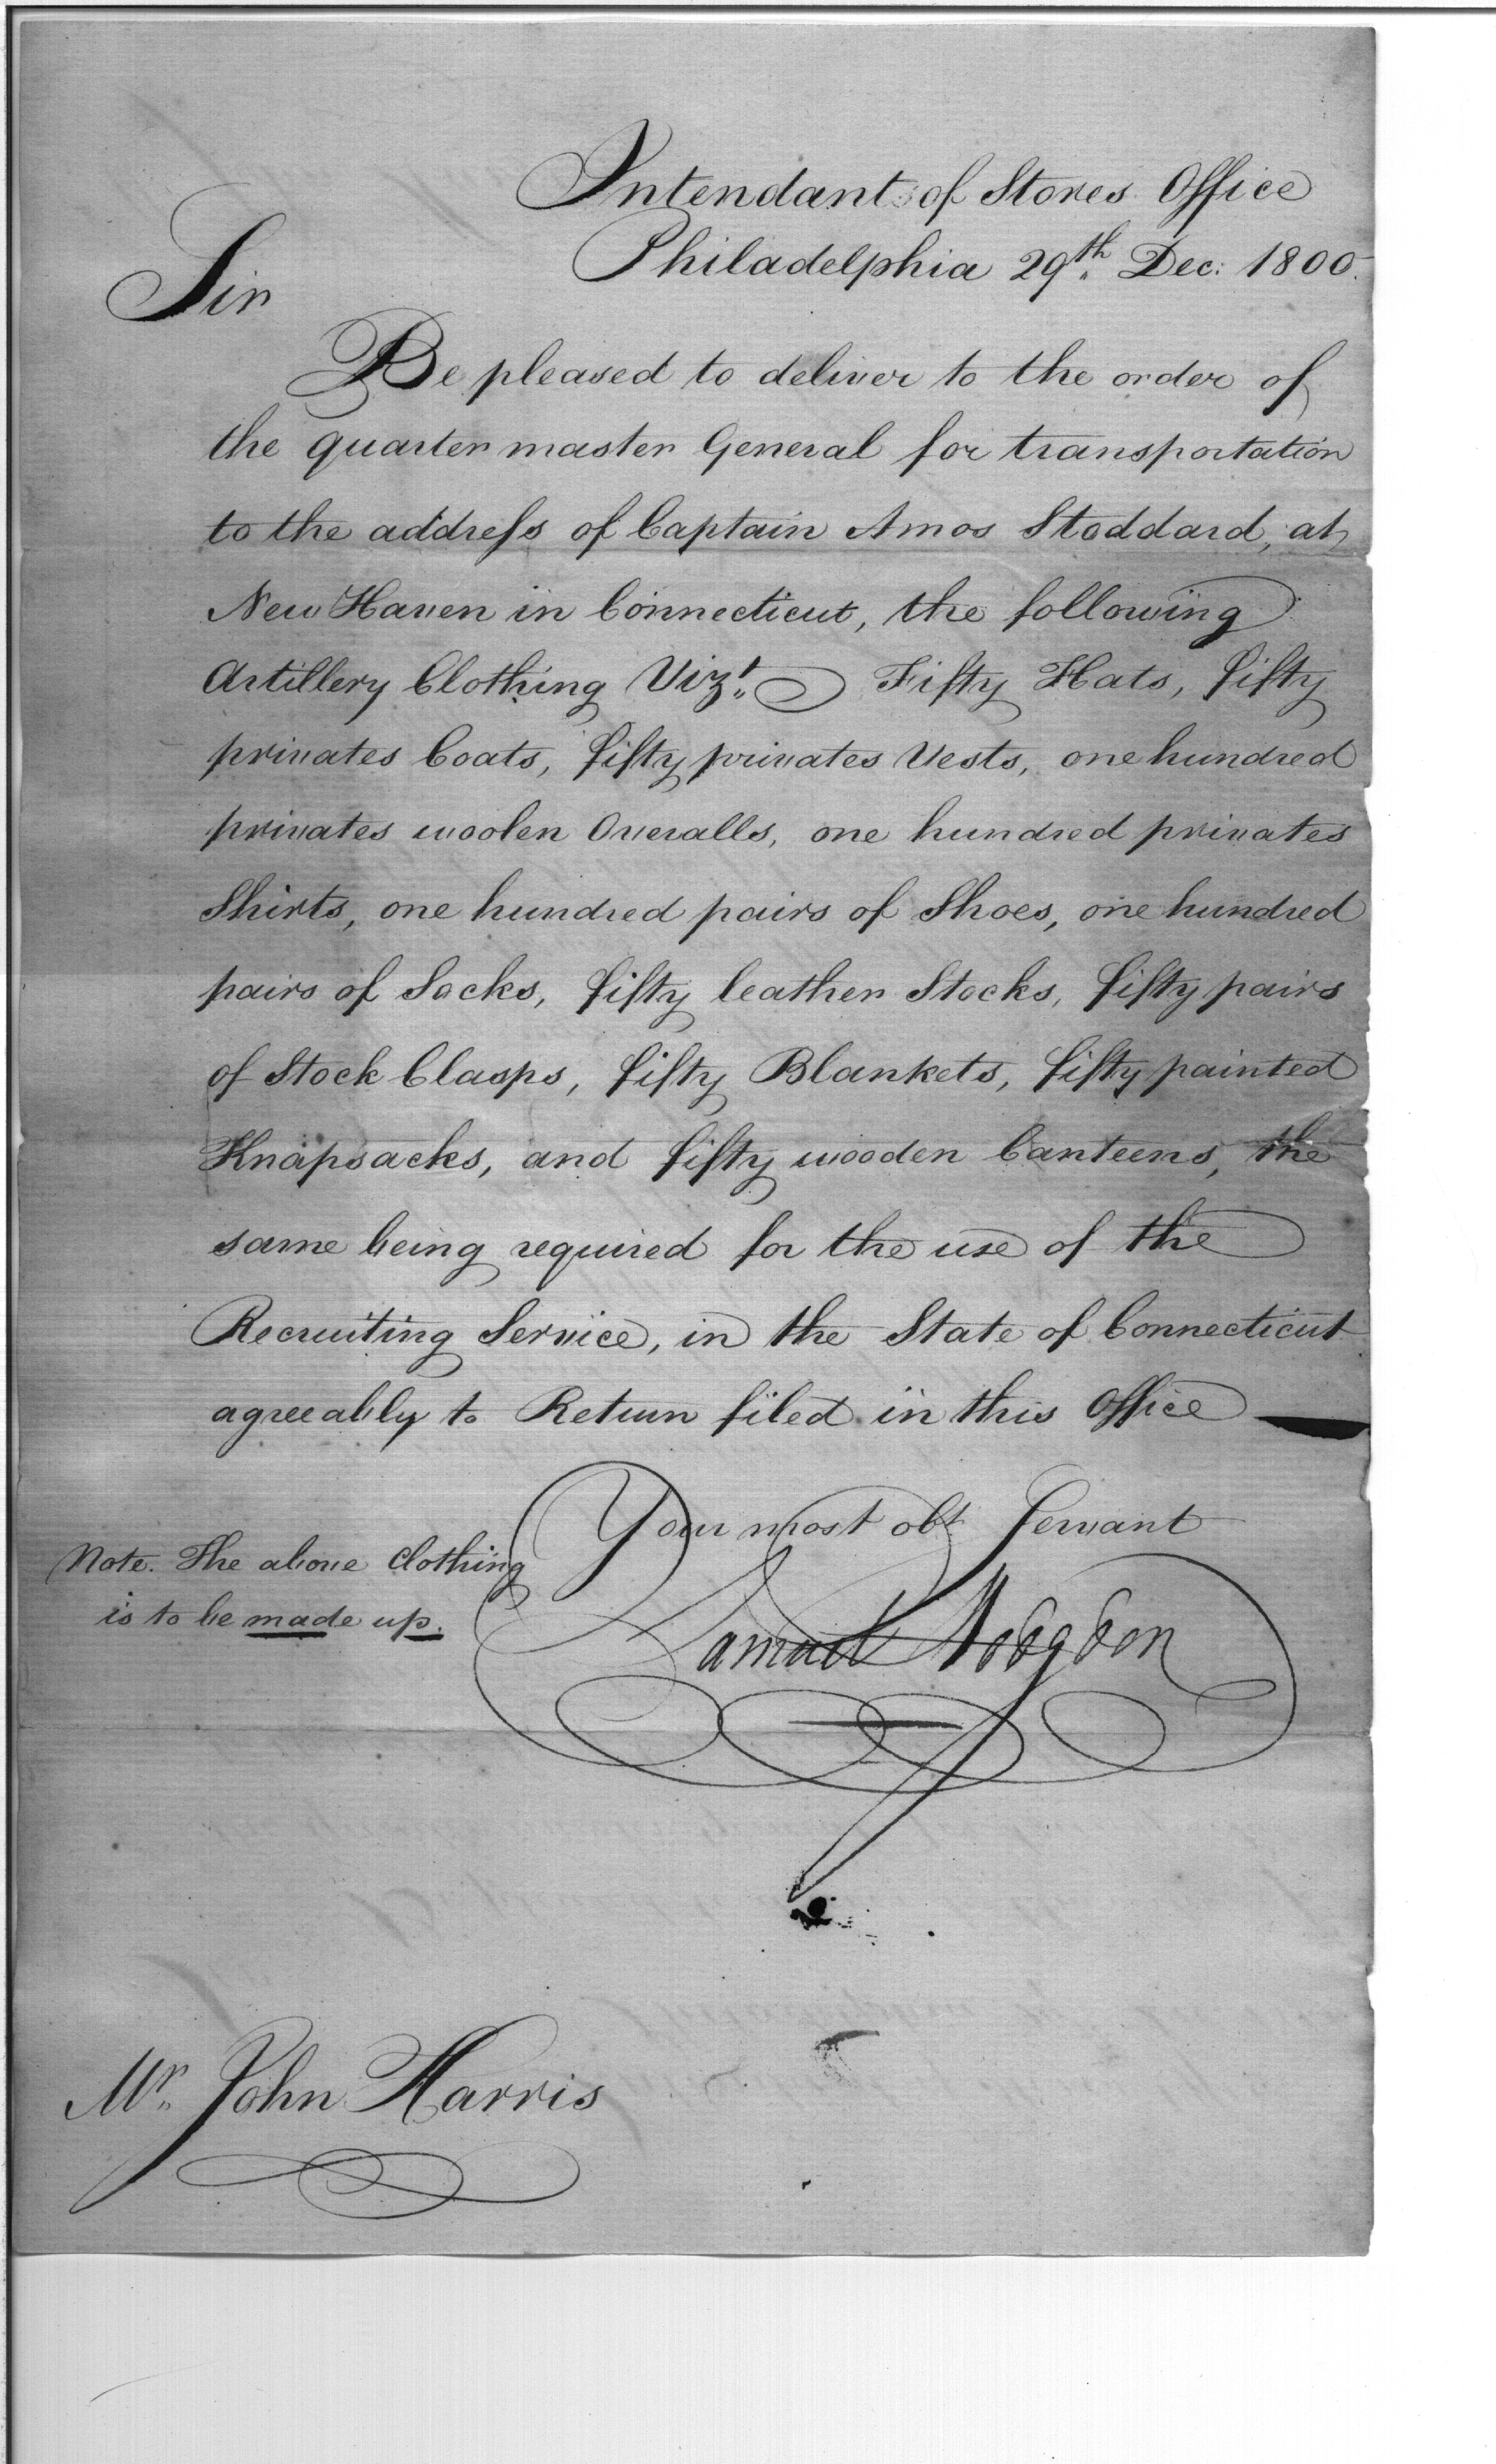 Intendant of Stores Office
Philadelphia 29th Dec: 1800.
Sir
Be pleased to deliver to the order of
the quarter master General for transportation
to the address of Captain Amos Stoddard, at
New Haven in Connecticut, the following
Artillery Clothing Vizt. Fifty Hats, fifty
privates Coats, fifty privates Vests, one hundred
privates woolen Overalls, one hundred privates
Shirts, one hundred pairs of Shoes, one hundred
pairs of Socks, fifty leather Stocks, fifty pairs
of Stock Clasps, fifty Blankets, fifty painted
Knapsacks, and fifty wooden Canteens, the
same being required for the use of the
Recruiting Service, in the State of Connecticut
agreeably to Return filed in this Office
Your most obt Servant
Note. The above Clothing
is to be made up.
Samuel Hodgdon
Mr. John Harris